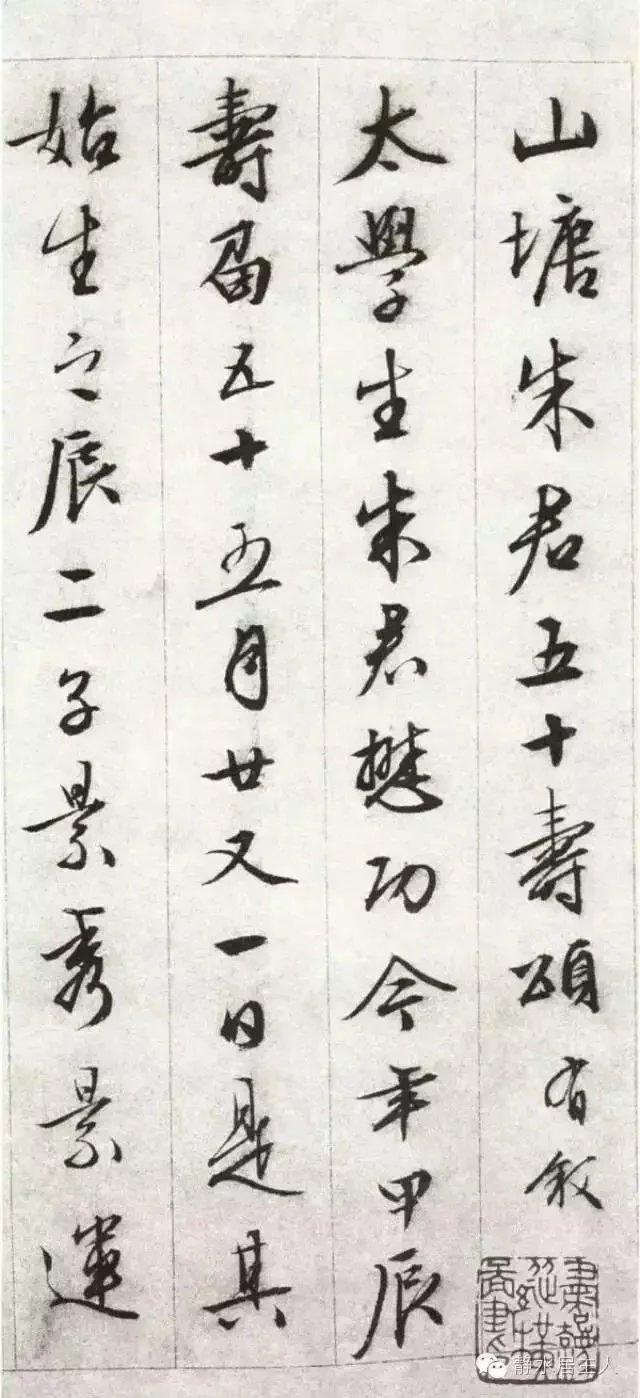 山塘朱君五十壽頌有敘
太學生朱君懋功今年甲辰
壽届五十五月廿又一日是其
始生之辰二子景秀景運
静水居主人